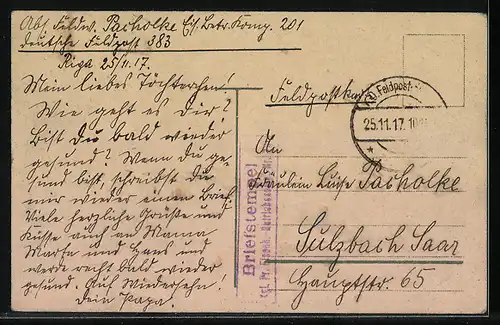 Abs. Feldw. Pacholke Eis. Betr. Komp. 201
Deutsche Feldpost 383
Riga 25/11.17.
Mein liebes Töchterchen!
Wie geht es Dir?
Bist du bald wieder
gesund? Wenn du ge-
sund bist, schreibst du
mir wieder einen Brief.
Viele herzliche Grüße und
Küsse auch an Mama
Marfse und Hans und
werde recht bald wieder
gesund. Auf Wiedersehn!
Dein Papa.
Feldpostkarte
Feldpost
25.11.17. 10
Briefstempel
Kgl. Pr. Eisenb.
An
Fräulein Luise Pacholke
Sulzbach Saar
Hauptstr. 65